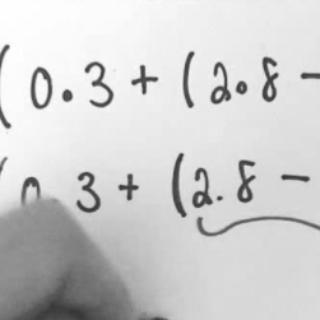 (0.3 + (2.8 -
(0 3 + (2.8 -